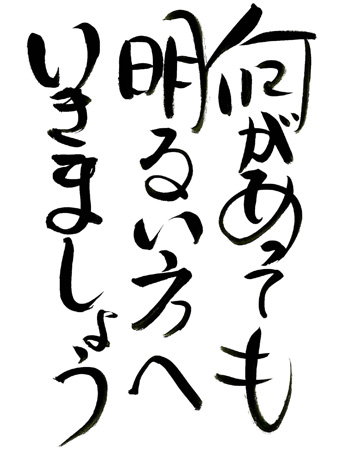 何があっても
明るい方へ
いきましょう